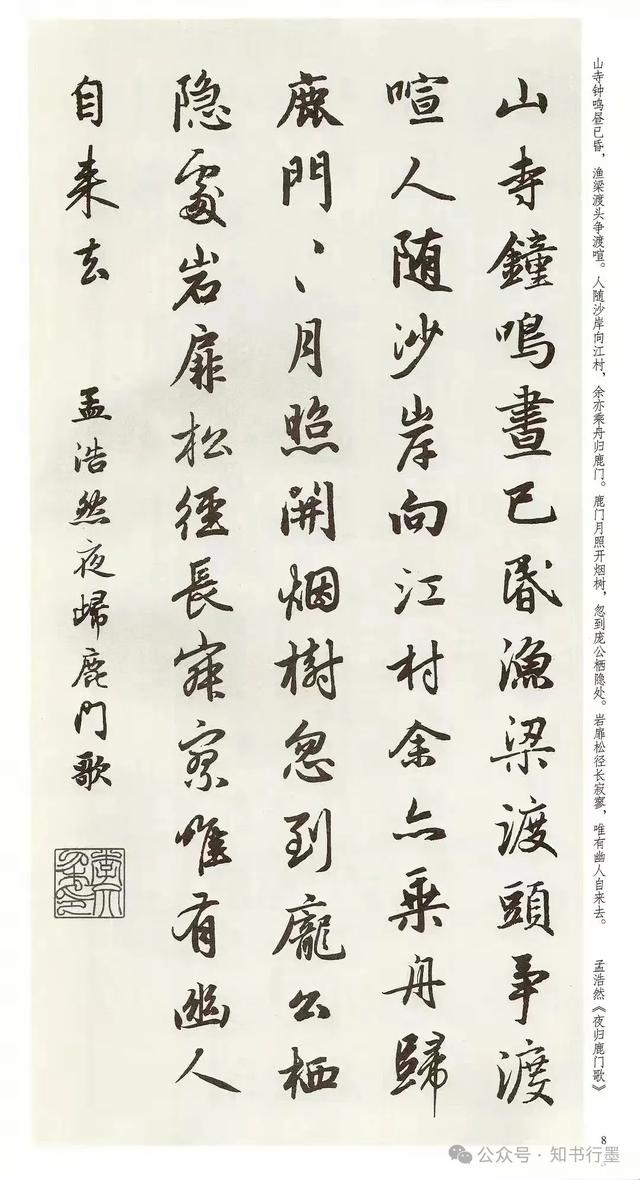 山寺钟鸣昼已昏，渔梁渡头争渡喧。人随沙岸向江村，余亦乘舟归鹿门。鹿门月照开烟树，忽到庞公栖隐处。岩扉松径长寂寥，唯有幽人自来去。 孟浩然《夜归鹿门歌》
山寺鐘鳴晝已昏漁梁渡頭爭渡
喧人随沙岸向江村余亦乘舟歸
鹿門〻月照開烟樹忽到龐公栖
隐處岩扉松徑長寂寥唯有幽人
自来去 孟浩然夜歸鹿門歌
8
公众号·知书行墨